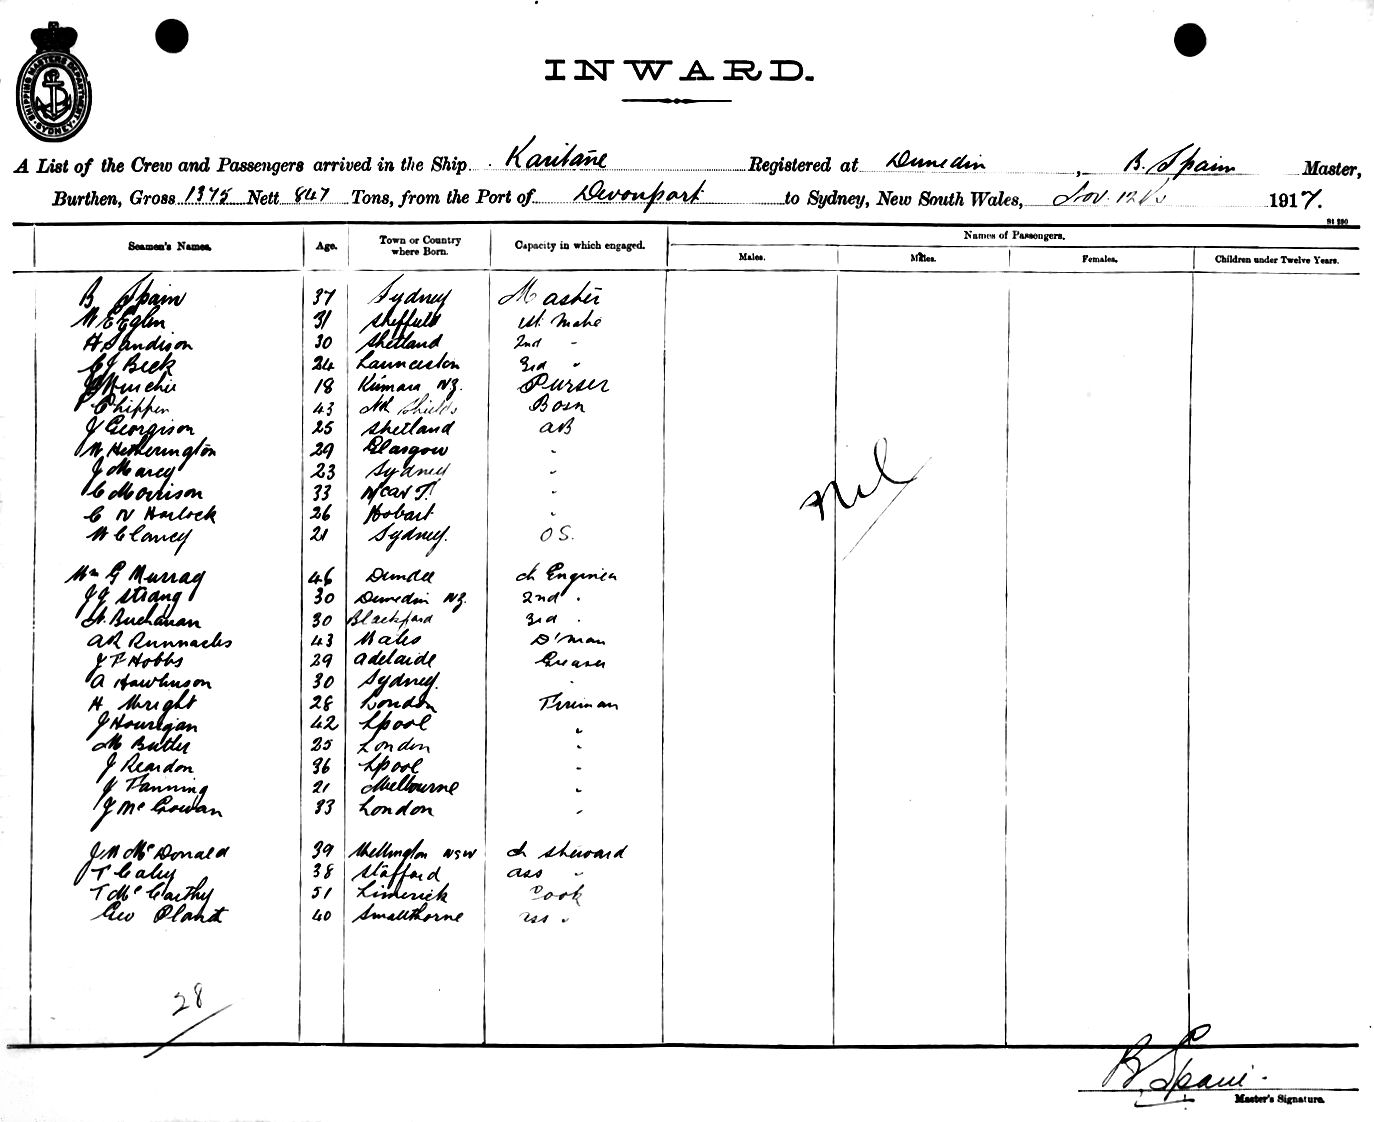 SHIPPING MASTERS DEPARTMENT SYDNEY
INWARD.
A List of the Crew and Passengers arrived in the Ship Karitane Registered at Dunedin, B. Spain Master,
Burthen, Gross 1375 Nett 847 Tons, from the Port of Devonport to Sydney, New South Wales, Nov. 12th 1917.
Seamen's Names. Age. Town or Country where Born. Capacity in which engaged. Names of Passengers.
Males. Males. Females. Children under Twelve Years.
B Spain 37 Sydney Master
W E Eglin 31 Sheffield 1st Mate
H Sandison 30 Shetland 2nd "
C J Beck 24 Launceston 3rd "
18 Kumara NZ. Purser
Chippen 43 Nth Shields Bosn
J Georgison 25 Shetland AB
W Hetherington 29 Glasgow "
J Marey 23 Sydney "
C Morrison 33 "
C N Harlock 26 Hobart "
W Clancy 21 Sydney. OS.
Nil
Wm G Murray 46 Dundee Ch Engineer
J J Strang 30 Dunedin NZ. 2nd "
Buchanan 30 Blackford 3rd "
A R Runnacles 43 Wales D'man
J F Hobbs 29 Adelaide Greaser
A Hawkinson 30 Sydney. "
H Wright 28 London Fireman
J Hourigan 42 Lpool "
M Butler 25 London "
J Reardon 36 Lpool "
J Fanning 21 Melbourne "
J McGowan 33 London "
J W McDonald 39 Wellington NSW Ch Steward
T Caley 38 Stafford ass "
T McCarthy 51 Limerick Cook
Geo Plant 40 Smallthorne ass "
28
B. Spain.
Master's Signature.